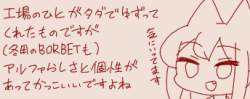 工場のひとがタダでゆずって
くれたものですが
(冬用のBORBETも)
アルファらしさと個性が
あってかっこいいですよね
気に入ってます